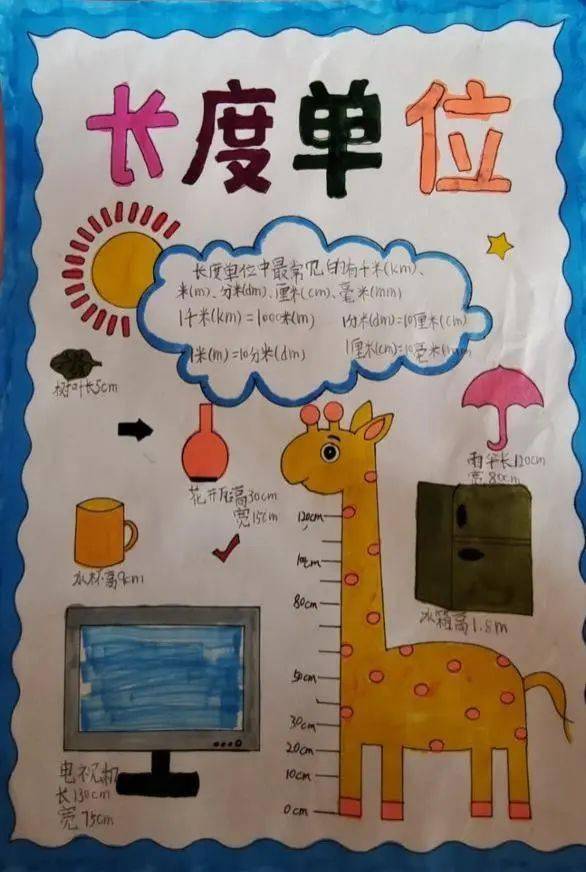 长度单位
长度单位中最常见的有千米(km)、
米(m)、分米(dm)、厘米(cm)、毫米(mm)
1千米(km)=1000米(m)
1分米(dm)=10厘米(cm)
1米(m)=10分米(dm)
1厘米(cm)=10毫米(mm)
树叶长5cm
雨伞长120cm
宽80cm
高30cm
宽15cm
水杯高9cm
冰箱高1.8m
电视机
长130cm
宽75cm
120cm
80cm
50cm
30cm
20cm
10cm
0cm